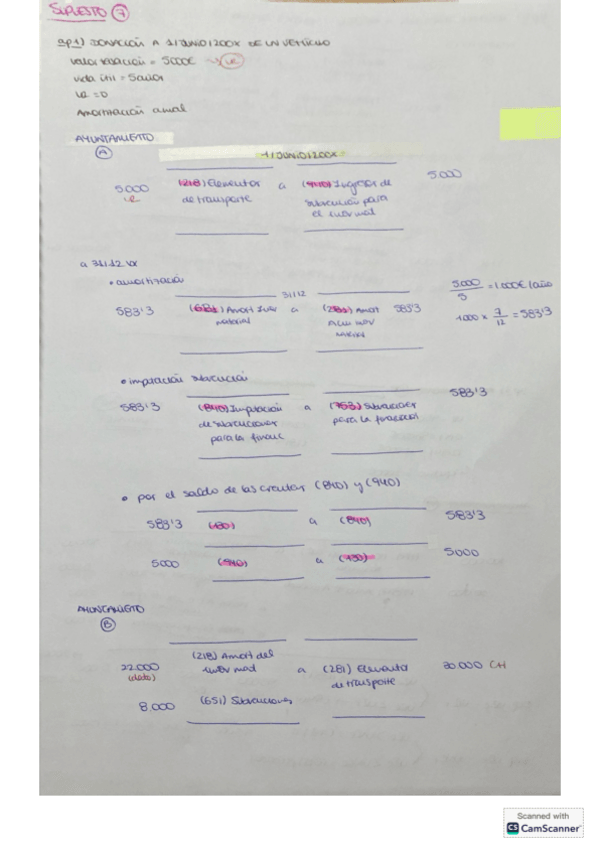 SUPUESTO 7
op1) DONACIÓN A 1/JUNIO/200X DE UN VEHÍCULO
valor = 5000€ → VR
vida útil = 5 años
VR = 0
Amortización anual
AYUNTAMIENTO
A
1/JUNIO/200X
5.000 (218) Elementos a (940) Ingresos de 5.000
de transporte subvención para
el inmov mat
a 31/12/XX
• amortización
5.000/5 = 1.000€/año
31/12
583'3 (681) Amort Inmv a (281) Amor 583'3
material Acum INMV
1.000 x 7/12 = 583'3
• imputación subvención
583'3 (840) Imputación a (753) Subvenciones 583'3
de subvenciones para la financ
para la financ
• por el saldo de las cuentas (840) y (940)
583'3 (130) a (840) 583'3
5000 (940) a (130) 5000
AYUNTAMIENTO
B
(218) Amort del
22.000 inmov mat a (281) Elementos 30.000
(dato) de transporte
8.000 (651) Subvenciones
Scanned with
CS CamScanner